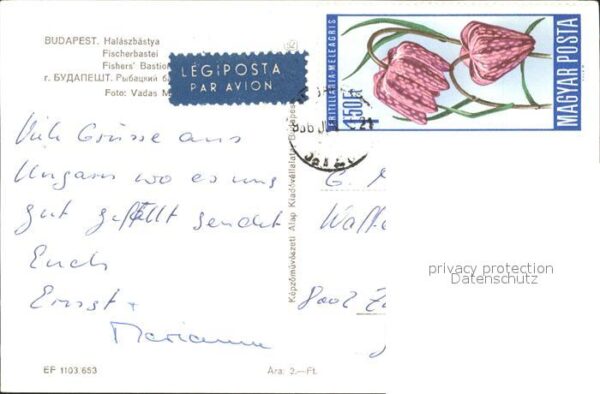 BUDAPEST. Halászbástya
Fischerbastei
Fishers' Bastion
г. БУДАПЕШТ. Рыбацкий
Foto: Vadas
LÉGIPOSTA
PAR AVION
FRITILLARIA·MELEAGRIS
1.50Ft
MAGYAR POSTA
Képzőművészeti Alap Kiadóvállalata, Budapest
Viele Grüsse aus
Ungarn wo es uns
gut gefällt sendet
Euch
Ernst +
Marianne
G.
Waffe
8002
privacy protection
Datenschutz
EF 1103 653
Ára: 2.—Ft.